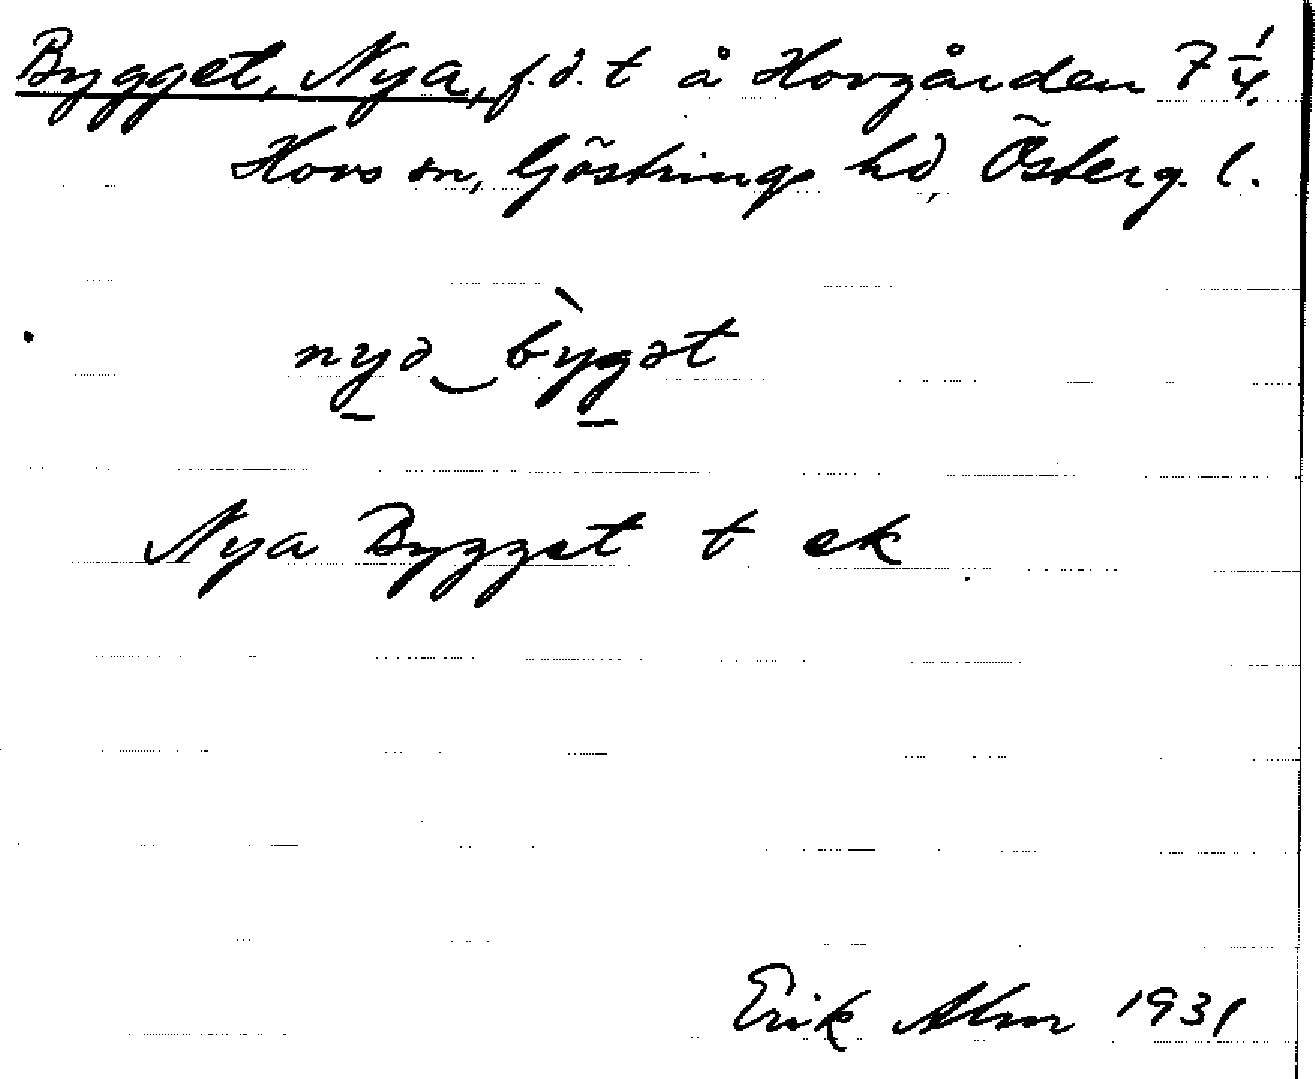 Bygget, Nya, f.d. t å Hovgården 7 1/4.
Hovs sn, Göstrings hd, Österg. l.
nyə‿b̀y̠gət
Nya Bygget t ek
Erik Alm 1931